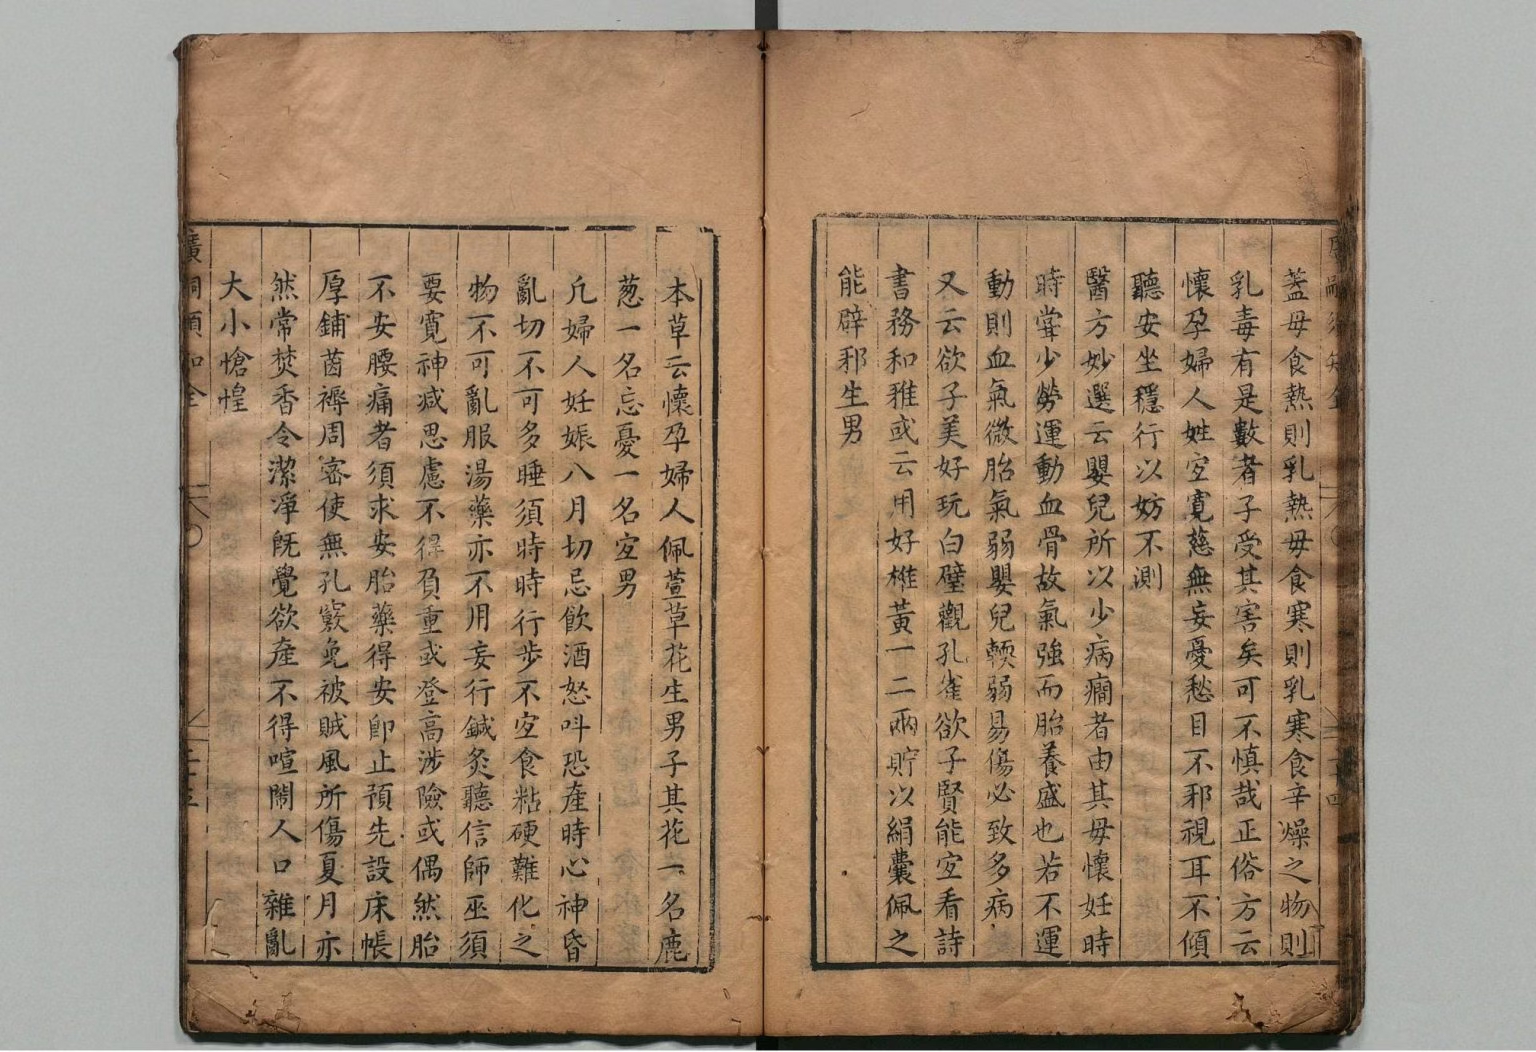 蓋母食熱則乳熱母食寒則乳寒食辛燥之物則
乳毒有是數者子受其害矣可不慎哉正俗方云
懷孕婦人姓宜寬慈無妄憂愁目不邪視耳不傾
聽安坐穩行以妨不測
醫方妙選云嬰兒所以少病癎者由其母懷妊時
時當少勞運動血骨故氣強而胎養盛也若不運
動則血氣微胎氣弱嬰兒輭弱易傷必致多病
又云欲子美好玩白璧觀孔雀欲子賢能宜看詩
書務和雅或云用好椎黃一二兩貯以絹囊佩之
能辟邪生男
本草云懷孕婦人佩萱草花生男子其花一名鹿
葱一名忘憂一名宜男
凢婦人妊娠八月切忌飲酒怒呌恐産時心神昏
亂切不可多睡須時時行步不宜食粘硬難化之
物不可亂服湯藥亦不用妄行鍼灸聽信師巫須
要寛神减思慮不得負重或登高涉險或偶然胎
不安腰痛者須求安胎藥得安卽止預先設床帳
厚鋪茵褥周宻使無孔竅免被賊風所傷夏月亦
然常焚香令潔凈旣覺欲産不得喧鬧人口雜亂
大小愴惶
廣嗣須知全